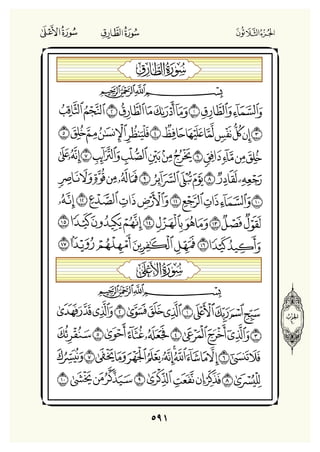 الجُزْءُ الثَّلَاثُونَ
سُورَةُ الطَّارِقِ
سُورَةُ الأَعْلَى
سُورَةُ الطَّارِقِ
بِسۡمِ ٱللَّهِ ٱلرَّحۡمَٰنِ ٱلرَّحِيمِ
وَٱلسَّمَآءِ وَٱلطَّارِقِ ١ وَمَآ أَدۡرَىٰكَ مَا ٱلطَّارِقُ ٢ ٱلنَّجۡمُ ٱلثَّاقِبُ
٣ إِن كُلُّ نَفۡسٖ لَّمَّا عَلَيۡهَا حَافِظٞ ٤ فَلۡيَنظُرِ ٱلۡإِنسَٰنُ مِمَّ خُلِقَ ٥
خُلِقَ مِن مَّآءٖ دَافِقٖ ٦ يَخۡرُجُ مِنۢ بَيۡنِ ٱلصُّلۡبِ وَٱلتَّرَآئِبِ ٧ إِنَّهُۥ عَلَىٰ
رَجۡعِهِۦ لَقَادِرٞ ٨ يَوۡمَ تُبۡلَى ٱلسَّرَآئِرُ ٩ فَمَا لَهُۥ مِن قُوَّةٖ وَلَا نَاصِرٖ
١٠ وَٱلسَّمَآءِ ذَاتِ ٱلرَّجۡعِ ١١ وَٱلۡأَرۡضِ ذَاتِ ٱلصَّدۡعِ ١٢ إِنَّهُۥ
لَقَوۡلٞ فَصۡلٞ ١٣ وَمَا هُوَ بِٱلۡهَزۡلِ ١٤ إِنَّهُمۡ يَكِيدُونَ كَيۡدٗا ١٥
وَأَكِيدُ كَيۡدٗا ١٦ فَمَهِّلِ ٱلۡكَٰفِرِينَ أَمۡهِلۡهُمۡ رُوَيۡدَۢا ١٧
سُورَةُ الأَعْلَى
بِسۡمِ ٱللَّهِ ٱلرَّحۡمَٰنِ ٱلرَّحِيمِ
سَبِّحِ ٱسۡمَ رَبِّكَ ٱلۡأَعۡلَى ١ ٱلَّذِي خَلَقَ فَسَوَّىٰ ٢ وَٱلَّذِي قَدَّرَ فَهَدَىٰ
٣ وَٱلَّذِيٓ أَخۡرَجَ ٱلۡمَرۡعَىٰ ٤ فَجَعَلَهُۥ غُثَآءً أَحۡوَىٰ ٥ سَنُقۡرِئُكَ
فَلَا تَنسَىٰٓ ٦ إِلَّا مَا شَآءَ ٱللَّهُۚ إِنَّهُۥ يَعۡلَمُ ٱلۡجَهۡرَ وَمَا يَخۡفَىٰ ٧ وَنُيَسِّرُكَ
لِلۡيُسۡرَىٰ ٨ فَذَكِّرۡ إِن نَّفَعَتِ ٱلذِّكۡرَىٰ ٩ سَيَذَّكَّرُ مَن يَخۡشَىٰ ١٠
٥٩١